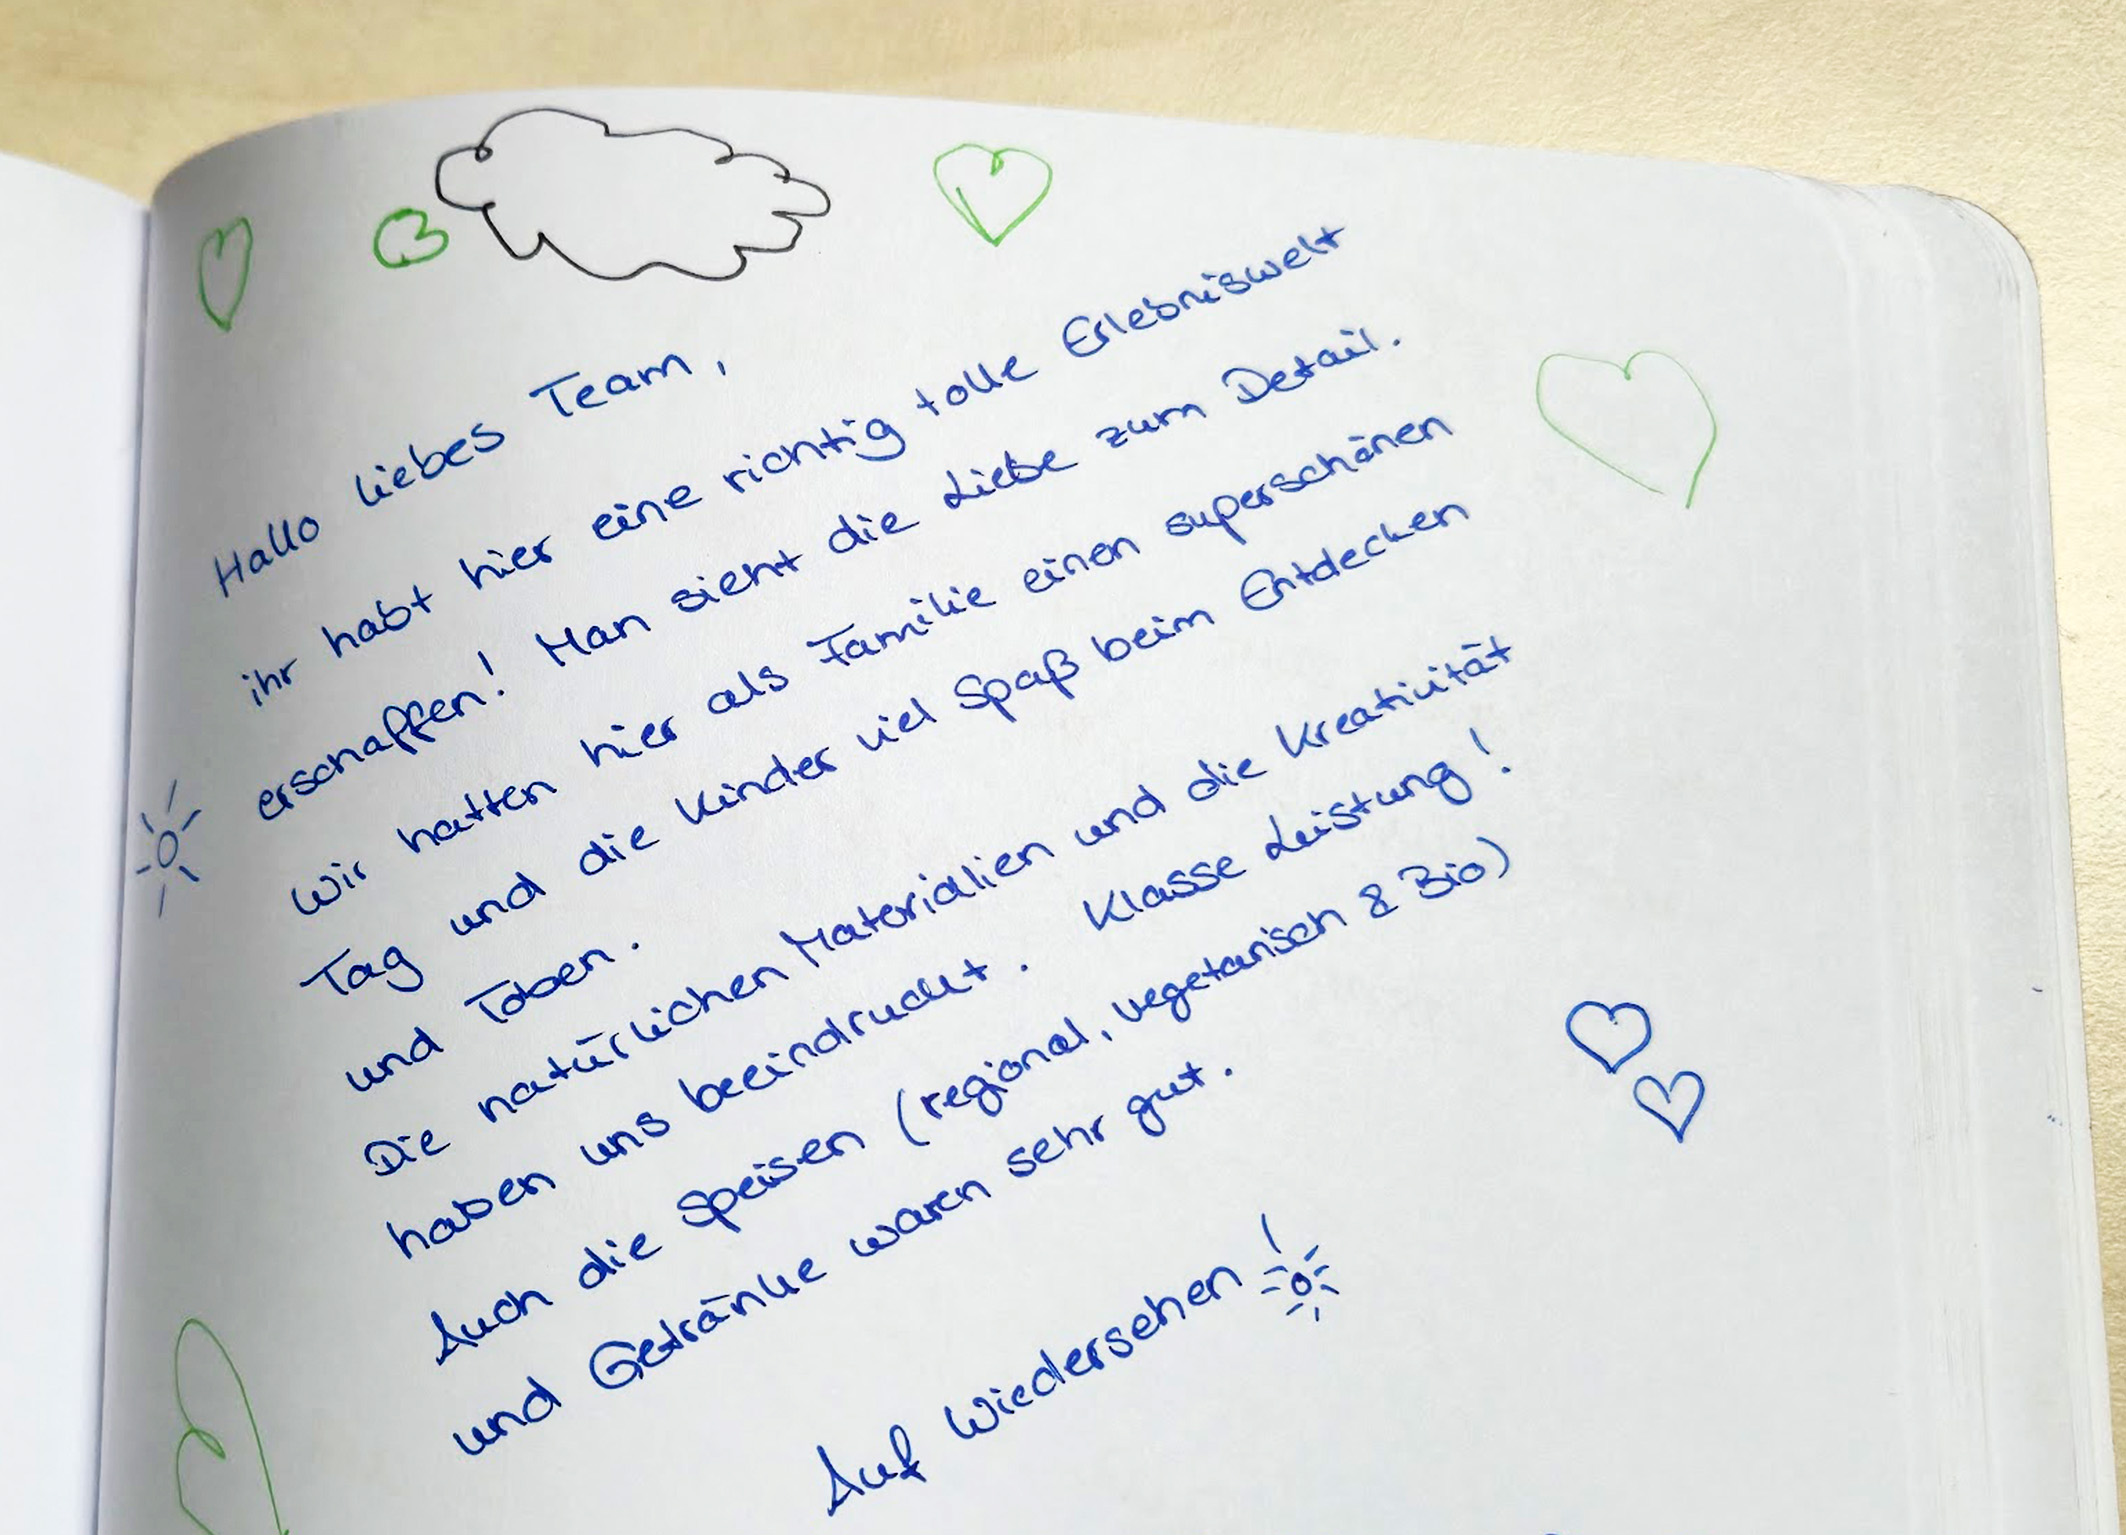 Hallo liebes Team,
ihr habt hier eine richtig tolle Erlebniswelt
erschaffen! Man sieht die Liebe zum Detail.
Wir hatten hier als Familie einen superschönen
Tag und die Kinder viel Spaß beim Entdecken
und Toben.
Die natürlichen Materialien und die Kreativität
haben uns beeindruckt. Klasse Leistung!
Auch die Speisen (regional, vegetarisch & Bio)
und Getränke waren sehr gut.
Auf Wiedersehen!